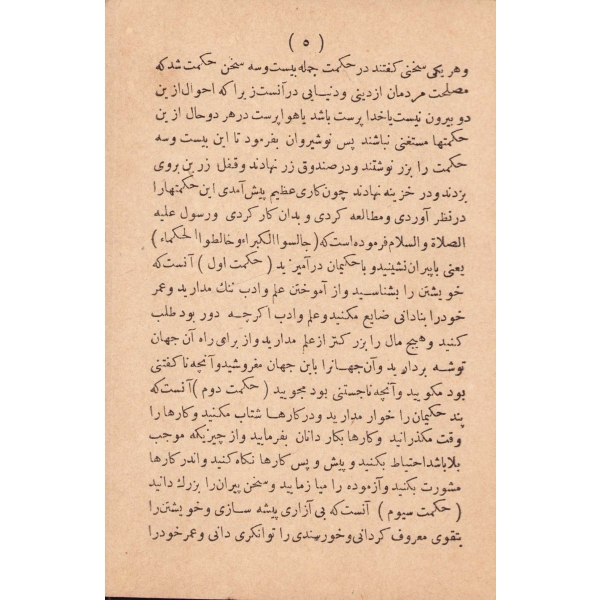 ( ٥ )
وهر یکی سخنی کفتند در حکمت جمله بیست وسه سخن حکمت شد که
مصلحت مردمان از دینی و دنیایی در آنست زیرا که احوال از ین
دو بیرون نیست یا خدا پرست باشد یا هوا پرست در هر دو حال از ین
حکمتها مستغنی نباشند پس نوشیروان بفرمود تا این بیست وسه
حکمت را بزر نوشتند ودر صندوق زر نهادند وقفل زرین بروی
بزدند ودر خزینه نهادند چون کاری عظیم پیش آمدی این حکمتهارا
در نظر آوردی ومطالعه کردی و بدان کار کردی ورسول علیه
الصلاة والسلام فرموده است که ( جالسوا الکبراء وخالطوا الحکماء )
یعنی با پیران نشینید و با حکیمان در آمیزید ( حکمت اول ) آنست که
خویشتن را بشناسید واز آموختن علم وادب ننك مدارید وعمر
خودرا بنادانی ضایع مکنید وعلم وادب اکرچه دور بود طلب
کنید وهیچ مال را بزرکتر از علم مدارید واز برای راه آن جهان
توشه بردارید وآن جهانرا باین جهان مفروشید وآنچه ناکفتنی
بود مکویید وآنچه ناجستنی بود مجویید ( حکمت دوم ) آنست که
پند حکیمان را خوار مدارید ودر کارها شتاب مکنید وکارها را
وقت مکذرانید وکارها بکار دانان بفرمایید واز چیزیکه موجب
بلا باشد احتیاط بکنید و پیش و پس کارها نکاه کنید واندر کارها
مشورت بکنید وآزموده را میازمایید وسخن پیران را بزرك دانید
( حکمت سیوم ) آنست که بی آزاری پیشه سازی وخویشتن را
بتقوی معروف کردانی وخورسندی را توانکری دانی وعمر خودرا